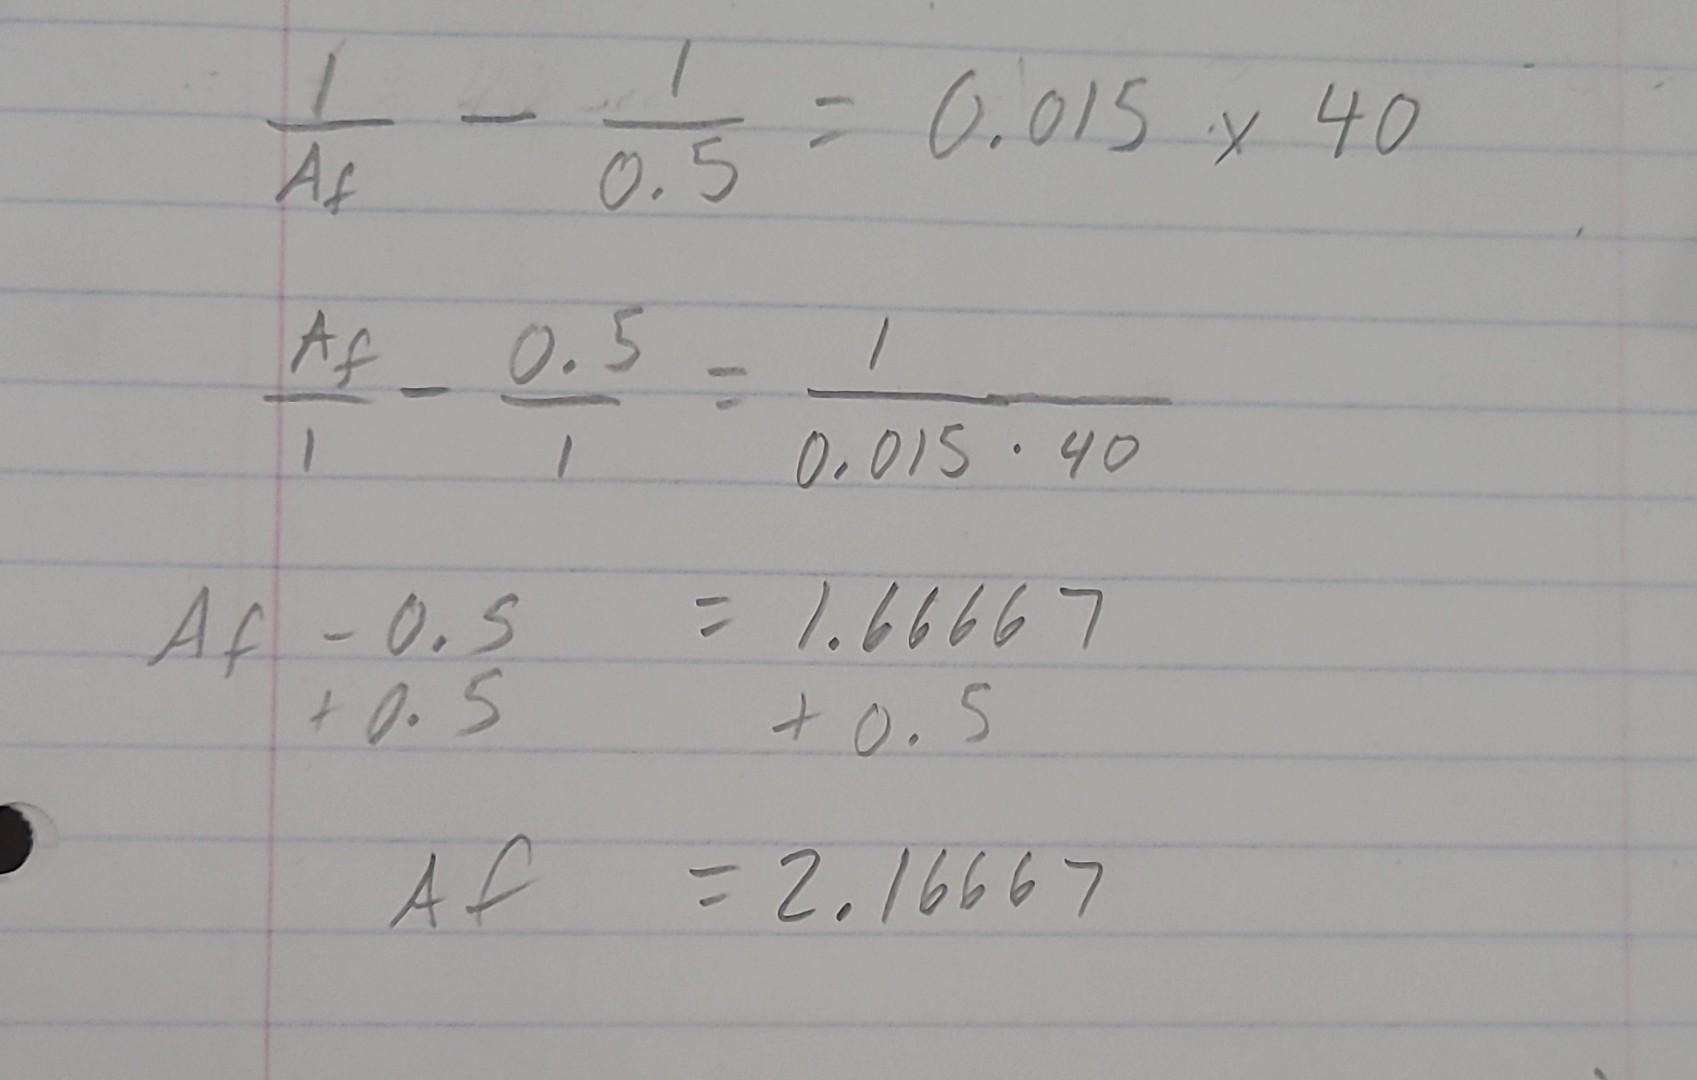 1/Af - 1/0.5 = 0.015 x 40
Af/1 - 0.5/1 = 1/0.015 · 40
Af - 0.5 = 1.66667
+ 0.5 + 0.5
Af = 2.16667